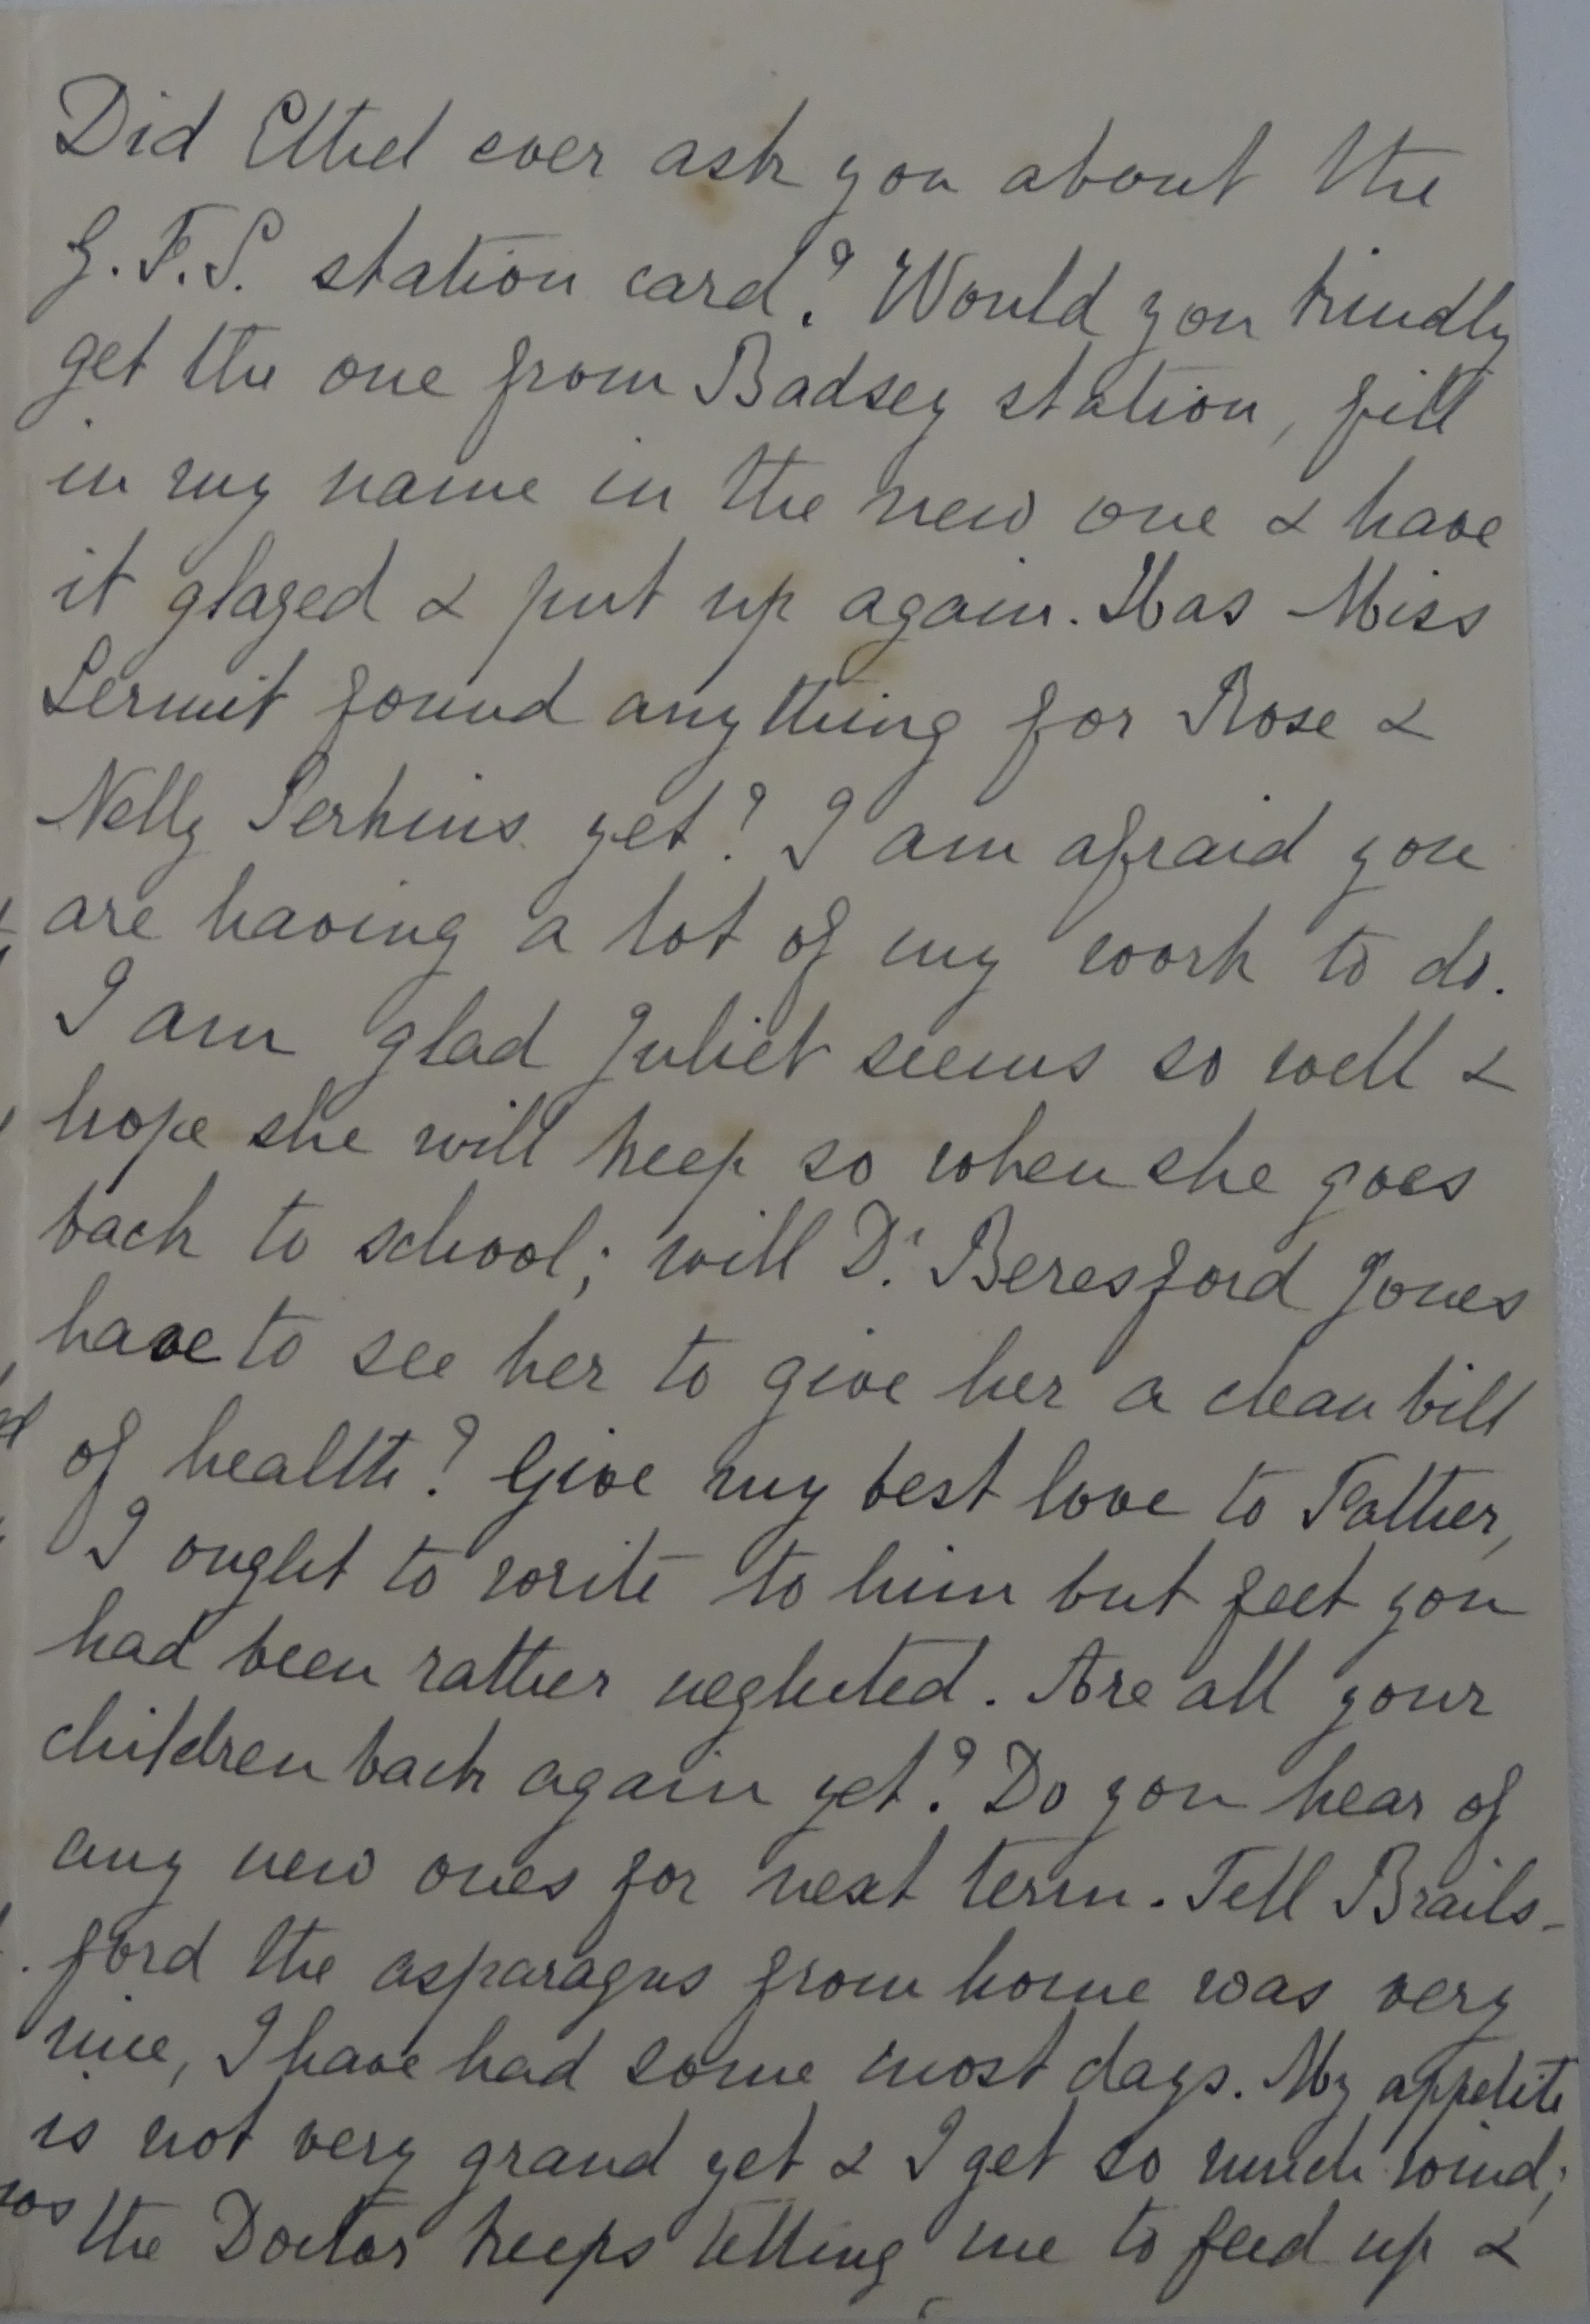 Did Ethel ever ask you about the
G.F.S. station card? Would you kindly
get the one from Badsey station, fill
in my name in the new one & have
it glazed & put up again. Has Miss
Sermit found anything for Rose &
Nelly Perkins yet? I am afraid you
are having a lot of my work to do.
I am glad Juliet seems so well &
hope she will keep so when she goes
back to school; will Dr. Beresford Jones
have to see her to give her a clean bill
of health? Give my best love to Father,
I ought to write to him but feel you
had been rather neglected. Are all your
children back again yet? Do you hear of
any new ones for next term. Tell Brails-
ford the asparagus from home was very
nice, I have had some most days. My appetite
is not very grand yet & I get so much wind;
the Doctor keeps telling me to feed up &